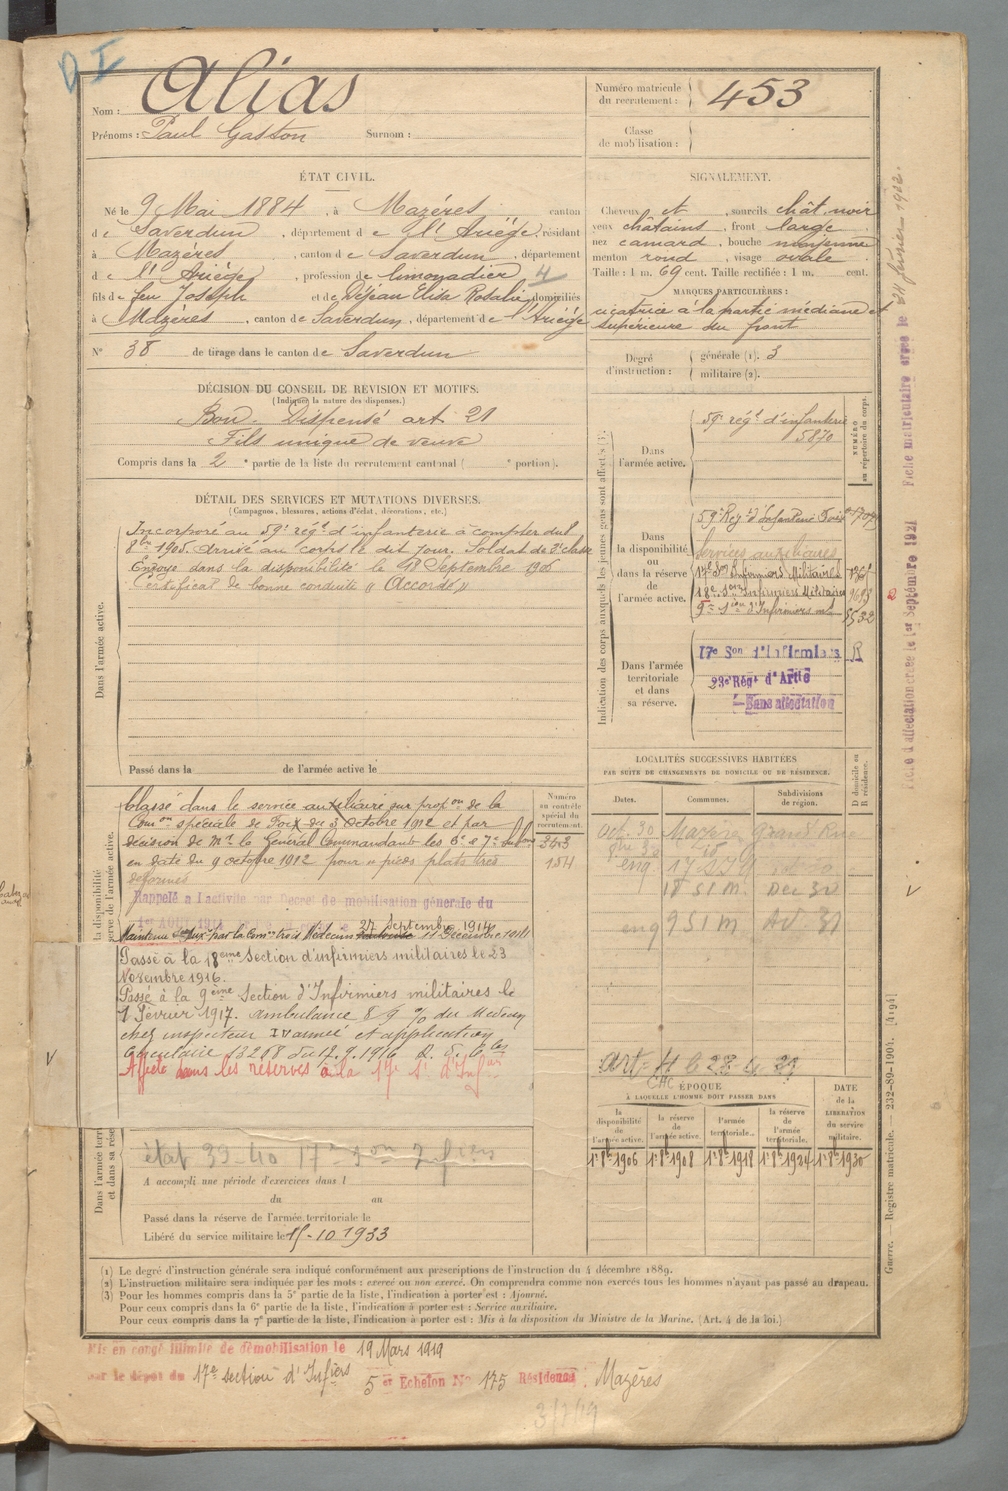 D I
Nom : Alias
Prénoms : Paul Gaston Surnom :
Numéro matricule du recrutement : 453
Classe de mobilisation :
ÉTAT CIVIL.
Né le 9 Mai 1884, à Mazères canton
de Saverdun, département de l'Ariége, résidant
à Mazères, canton de Saverdun, département
de l'Ariége, profession de limonadier 4
fils de feu Joseph et de Déjean Elisa Rosalie domiciliés
à Mazères, canton de Saverdun, département de l'Ariége
N° 38 de tirage dans le canton de Saverdun
SIGNALEMENT.
Cheveux et, sourcils chât. noir
yeux châtains, front large
nez camard, bouche moyenne
menton rond, visage ovale
Taille : 1 m. 69 cent. Taille rectifiée : 1 m. cent.
MARQUES PARTICULIÈRES :
cicatrice à la partie médiane et
supérieure du front
Degré d'instruction : générale (1). 3
militaire (2).
DÉCISION DU CONSEIL DE REVISION ET MOTIFS.
(Indiquer la nature des dispenses.)
Bon - Dispensé art 21
Fils unique de veuve
Compris dans la 2e partie de la liste du recrutement cantonal ( e portion).
DÉTAIL DES SERVICES ET MUTATIONS DIVERSES.
(Campagnes, blessures, actions d'éclat, décorations, etc.)
Dans l'armée active.
Incorporé au 59e régt d'infanterie à compter du
8bre 1905. Arrivé au corps le dit jour. Soldat de 2e classe
Envoyé dans la disponibilité le 18 Septembre 1906
Certificat de bonne conduite « Accordé »
Passé dans la de l'armée active le
Indication des corps auxquels les jeunes gens sont affectés
NUMÉRO au répertoire du corps.
Dans l'armée active.
59e régt d'infanterie
5870
Dans la disponibilité ou dans la réserve de l'armée active.
59e Rég. d'Infanterie Foix
Services auxiliaires
17e Son Infirmiers Militaires
18e Son Infirmiers Militaires
9e Son d'Infirmiers mil
Dans l'armée territoriale et dans sa réserve.
17e Son d'Infirmiers R
23e Régt d'Artie
Sans affectation
LOCALITÉS SUCCESSIVES HABITÉES
PAR SUITE DE CHANGEMENTS DE DOMICILE OU DE RÉSIDENCE.
D domicile ou R résidence.
Dates. Communes. Subdivisions de région.
Mazères Grande Rue
18 S I M
9 S I M
Numéro au contrôle spécial du recrutement.
Classé dans le service auxiliaire sur propon de la
Comon spéciale de Foix du 3 octobre 1912 et par
décision de Mr le Général Commandant les 6e et 7e Subons
en date du 9 octobre 1912 pour « pieds plats très
déformés
Rappelé à l'activité par Décret de mobilisation générale du
1er AOUT 1914 27 Septembre 1914
Maintenu Serv. aux par la Comon trois Médecins 11 Décembre 1914
Passé à la 18ème Section d'infirmiers militaires le 23
Novembre 1916.
Passé à la 9ème Section d'Infirmiers militaires le
1 Février 1917. ambulance 8/9 % du Médecin
chef inspecteur IV armée et application
circulaire 13218 du 17.9.1916
Affecté dans les réserves à la 17e Son d'Infers
état 39-40 17e Son Infiers
A accompli une période d'exercices dans l
du au
Passé dans la réserve de l'armée territoriale le
Libéré du service militaire le 15-10 1933
ÉPOQUE
À LAQUELLE L'HOMME DOIT PASSER DANS
la disponibilité de l'armée active.
la réserve de l'armée active.
l'armée territoriale.
la réserve de l'armée territoriale.
DATE de la LIBÉRATION du service militaire.
1er 8bre 1906 1er 8bre 1908 1er 8bre 1918 1er 8bre 1924 1er 8bre 1930
(1) Le degré d'instruction générale sera indiqué conformément aux prescriptions de l'instruction du 4 décembre 1889.
(2) L'instruction militaire sera indiquée par les mots : exercé ou non exercé. On comprendra comme non exercés tous les hommes n'ayant pas passé au drapeau.
(3) Pour les hommes compris dans la 5e partie de la liste, l'indication à porter est : Ajourné.
Pour ceux compris dans la 6e partie de la liste, l'indication à porter est : Service auxiliaire.
Pour ceux compris dans la 7e partie de la liste, l'indication à porter est : Mis à la disposition du Ministre de la Marine. (Art. 4 de la loi.)
Mis en congé illimité de démobilisation le 19 Mars 1919
par le dépôt du 17e section d'Infiers 5e Echelon No 175 Résidence : Mazères
Fiche d'affectation créée le 1er Septembre 1921
Fiche matriculaire créée le 24 février 1922.
Guerre. — Registre matricule. — 232-89-1904. [4194]